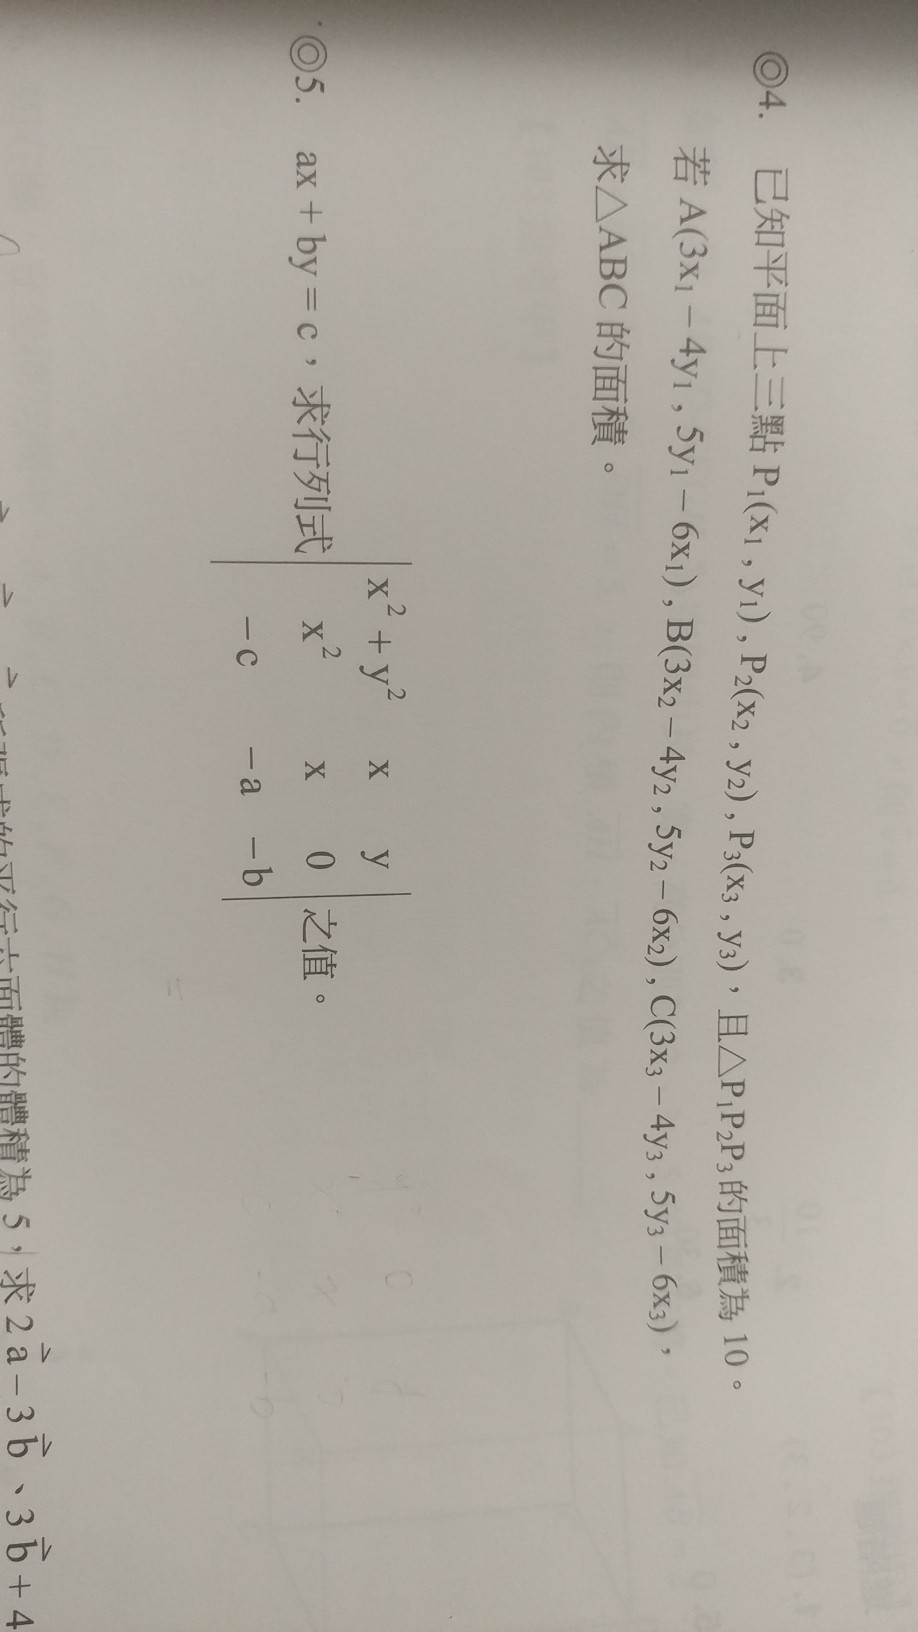 ◎4. 已知平面上三點 P₁(x₁ , y₁) , P₂(x₂ , y₂) , P₃(x₃ , y₃)，且△P₁P₂P₃的面積為 10。
若 A(3x₁ − 4y₁ , 5y₁ − 6x₁) , B(3x₂ − 4y₂ , 5y₂ − 6x₂) , C(3x₃ − 4y₃ , 5y₃ − 6x₃)，
求△ABC 的面積。
x² + y² x y
◎5. ax + by = c，求行列式 x² x 0 之值。
−c −a −b
的平行六面體的體積為 5，求 2a⃗ − 3b⃗、3b⃗ + 4